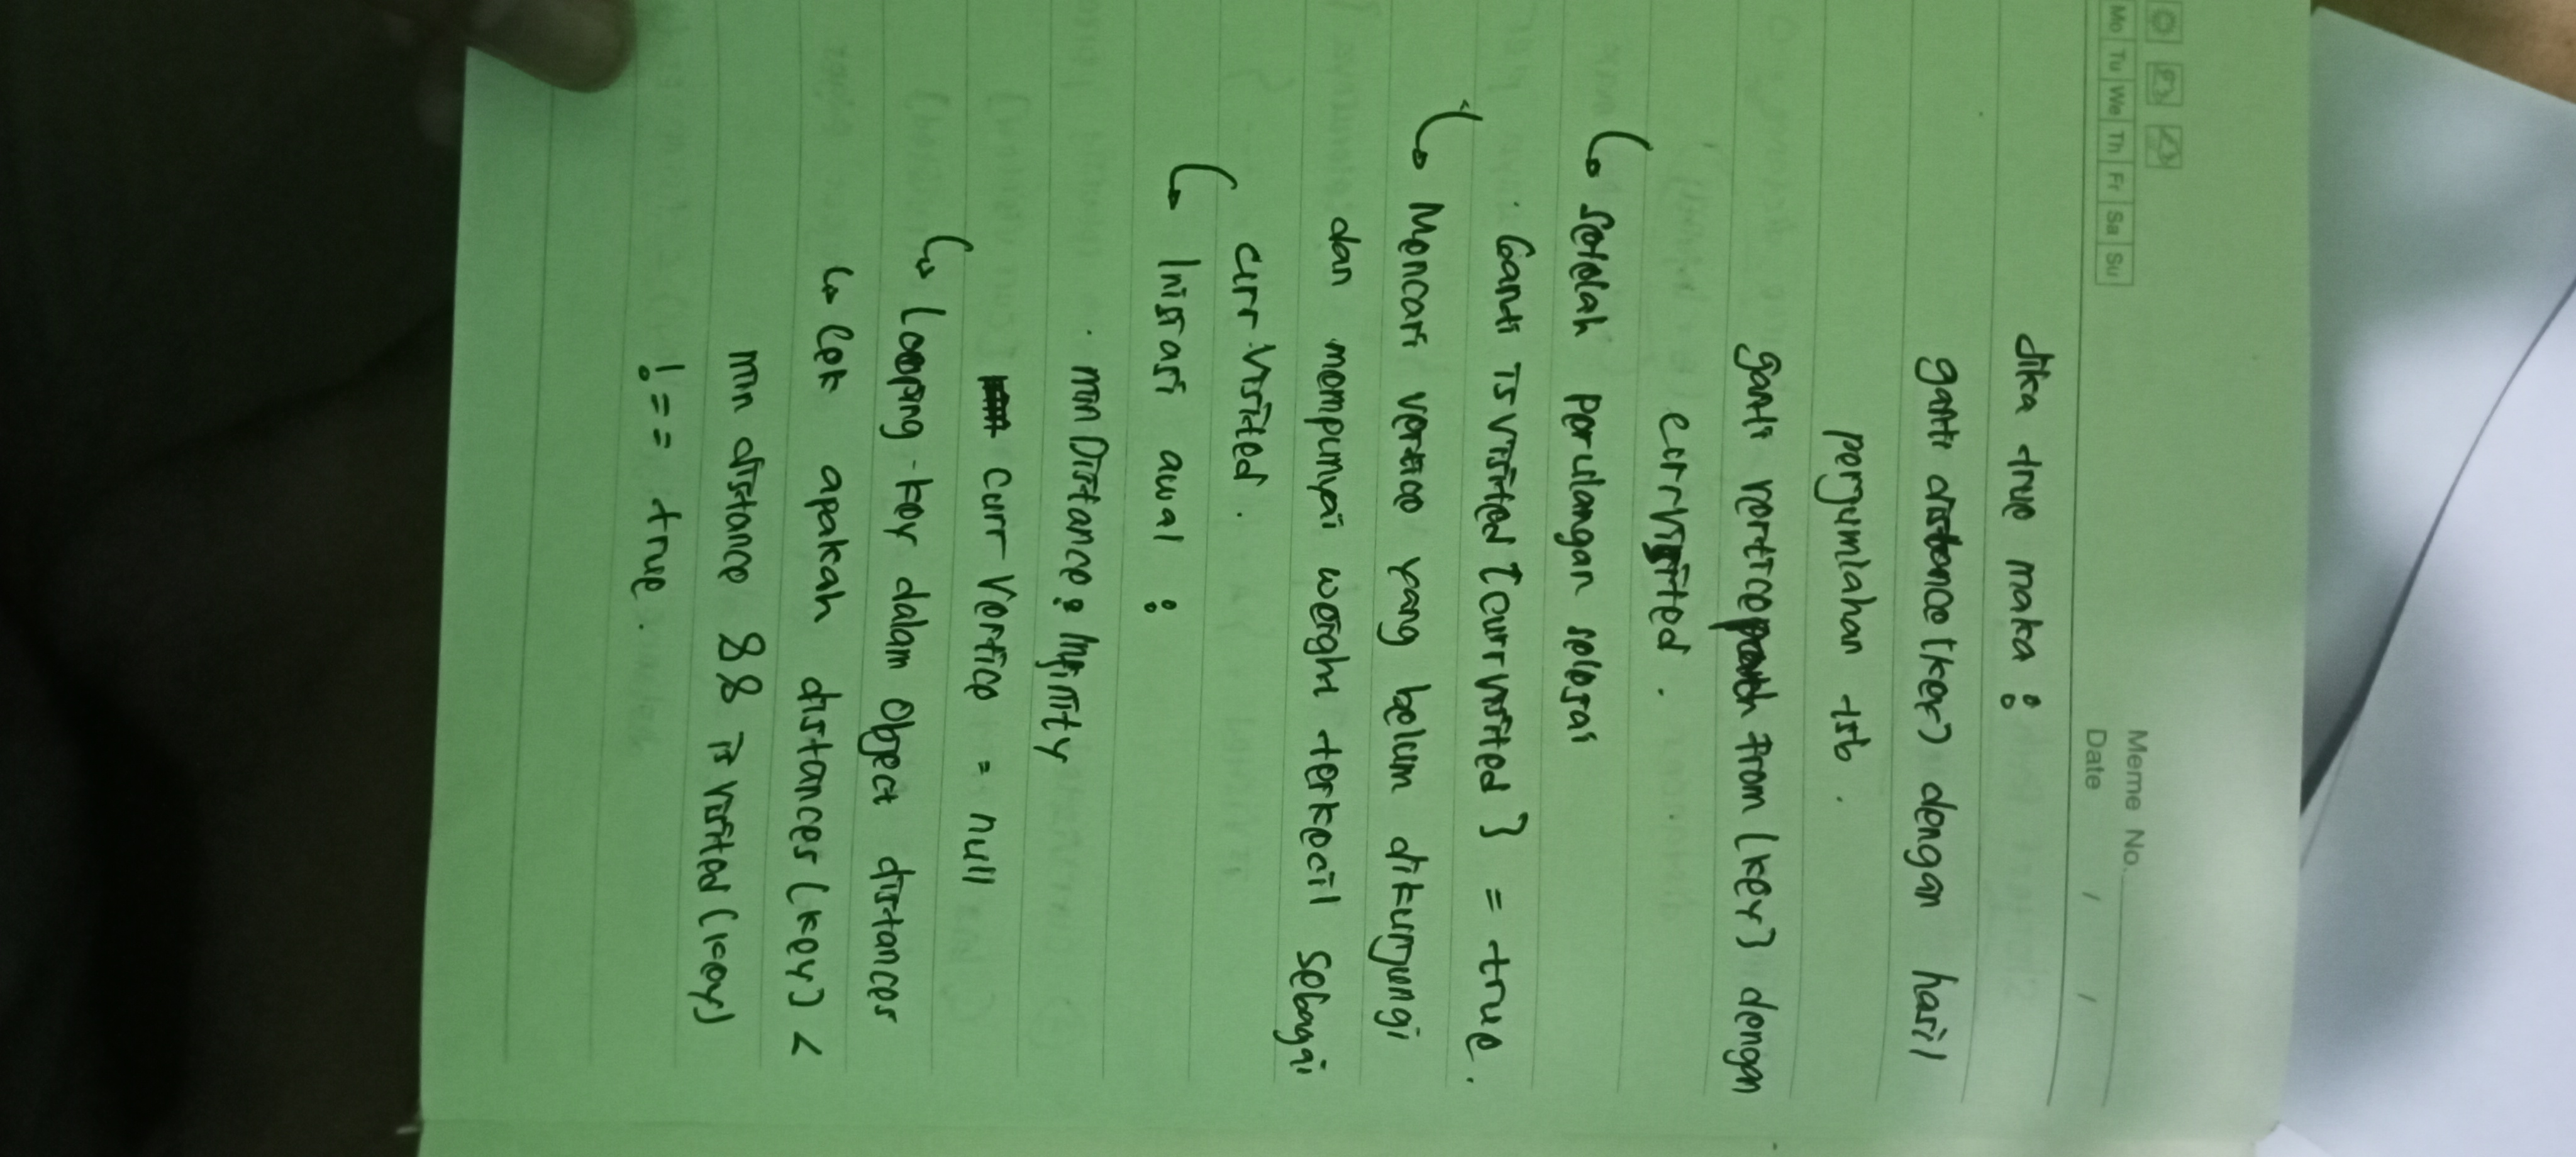 Mo Tu We Th Fr Sa Su
Meme No.
Date / /
dika true maka :
ganti distance[key] dengan hasil
penjumlahan tsb .
ganti verticefrom [key] dengan
currvisited .
↳ setelah perulangan selesai
· Ganti isvisited [currvisited] = true .
↳ Mencari vertice yang belum dikunjungi
dan mempunyai weight terkecil sebagai
curr visited .
↳ Inisiasi awal :
· min Distance : Infinity
curr vertice = null
↳ looping key dalam object distances
↳ Cek apakah distances [key] <
min distance && is visited [key]
!== true .